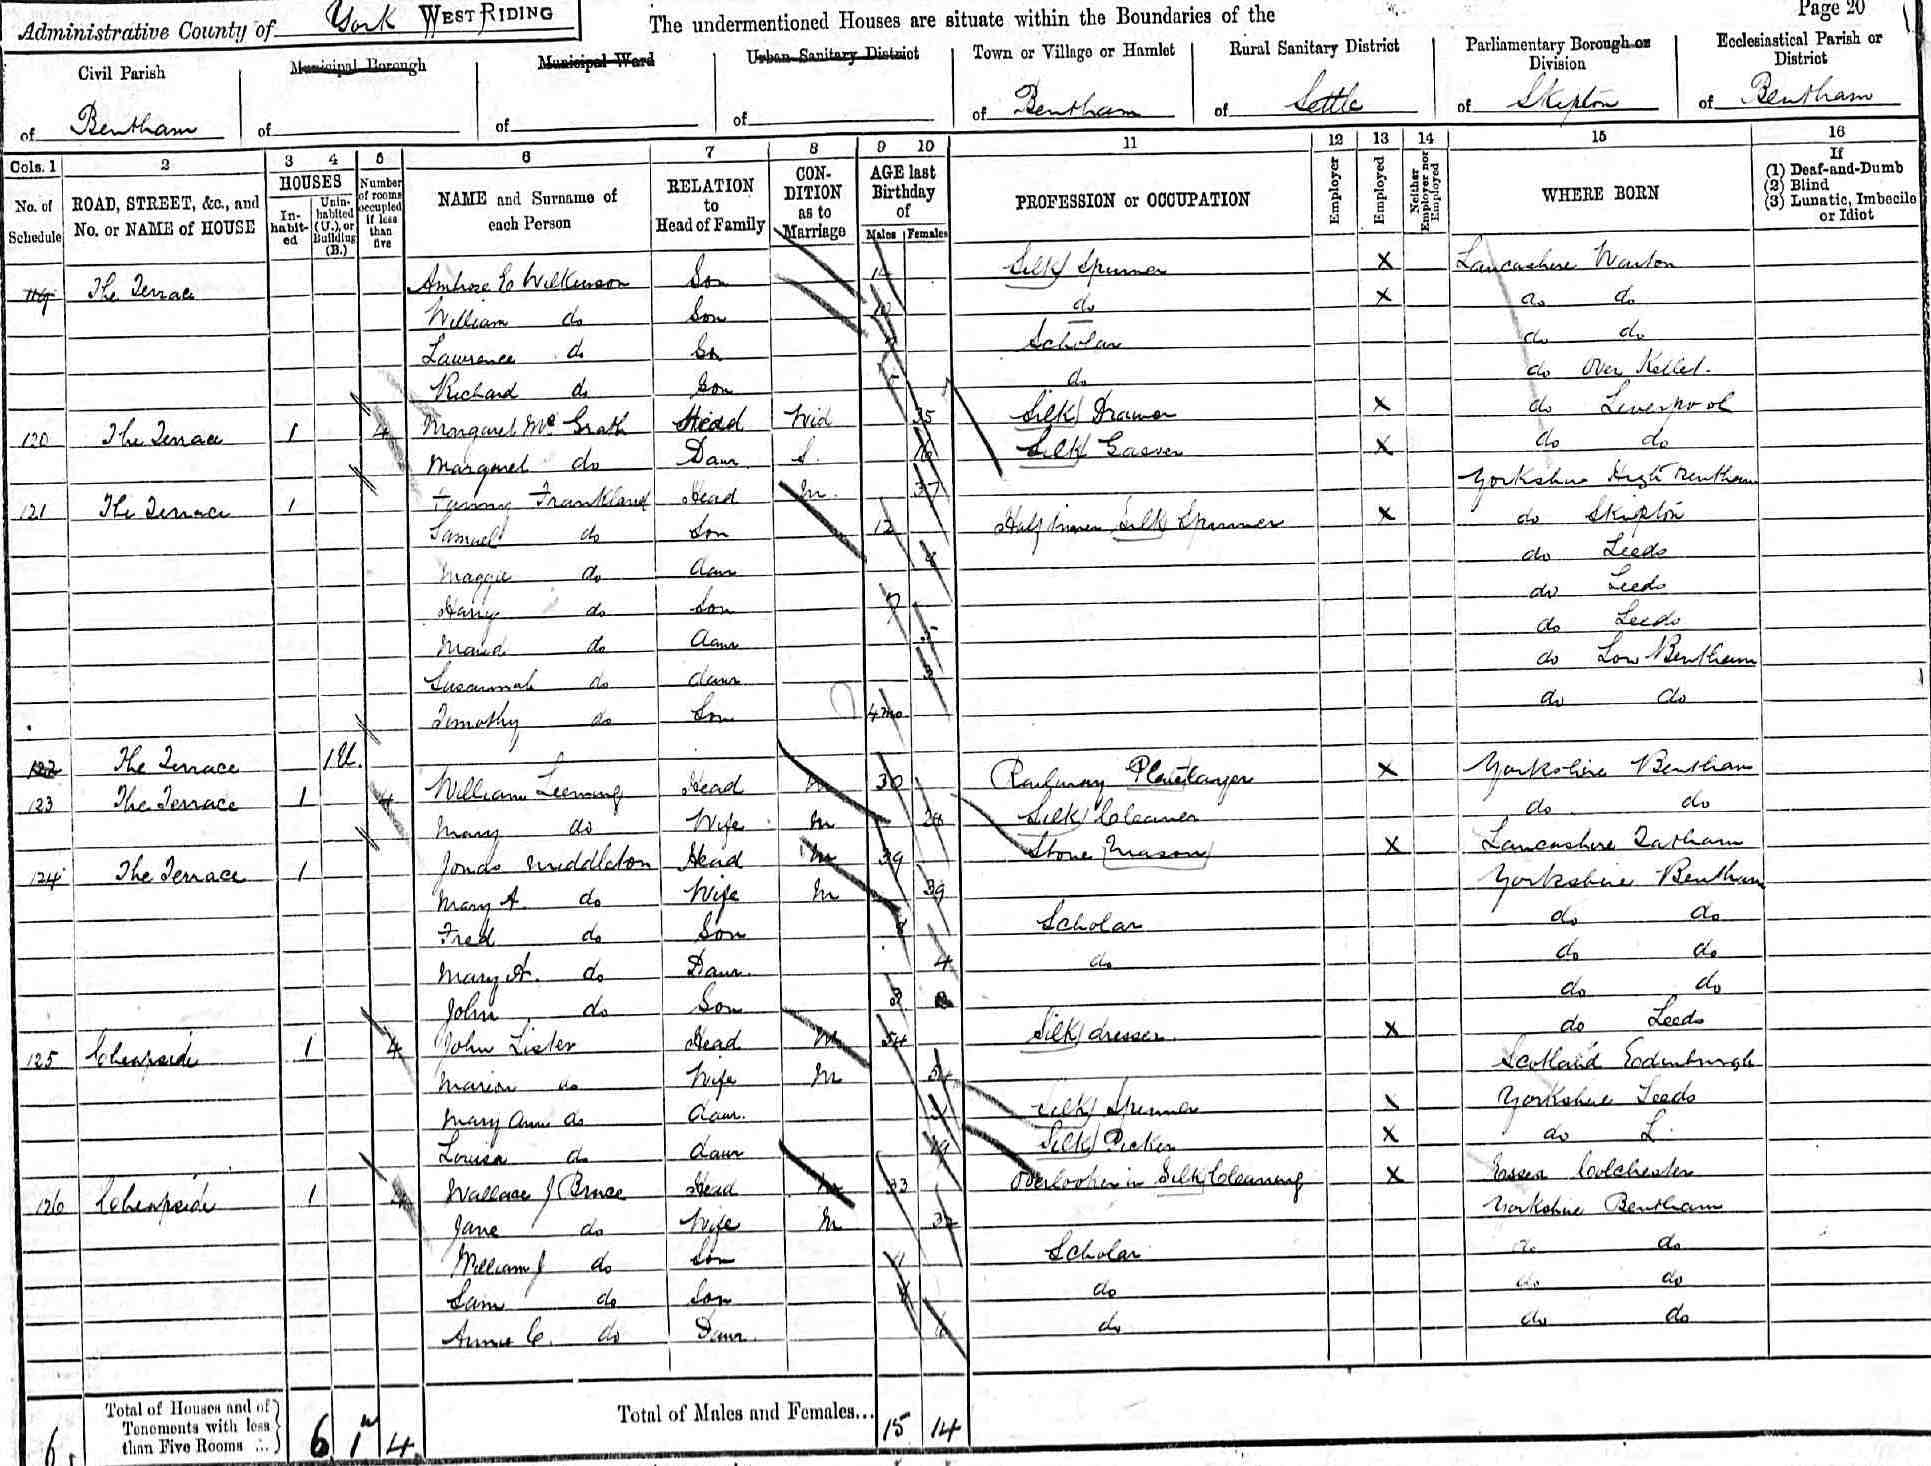 Administrative County of York WEST RIDING The undermentioned Houses are situate within the Boundaries of the Page 20
Civil Parish Municipal Borough Municipal Ward Urban Sanitary District Town or Village or Hamlet Rural Sanitary District Parliamentary Borough or Division Ecclesiastical Parish or District
of Bentham of of of of Bentham of Settle of Skipton of Bentham
Cols. 1 2 3 4 5 6 7 8 9 10 11 12 13 14 15 16
No. of Schedule ROAD, STREET, &c., and No. or NAME of HOUSE HOUSES Inhabit-ed Unin-habited (U.), or Building (B.) Number of rooms occupied if less than five NAME and Surname of each Person RELATION to Head of Family CON-DITION as to Marriage AGE last Birthday of Males Females PROFESSION or OCCUPATION Employer Employed Neither Employer nor Employed WHERE BORN If (1) Deaf-and-Dumb (2) Blind (3) Lunatic, Imbecile or Idiot
119 The Terrace Ambrose E Wilkinson Son Silk Spinner X Lancashire Warton
William do Son do X do do
Lawrence do Son Scholar do do
Richard do Son do do Over Kellet.
120 The Terrace 1 4 Margaret Mc Grath Head Wid 35 Silk Drawer X do Liverpool
Margaret do Daur. S. 16 Silk Gasser X do do
121 The Terrace 1 Fanny Frankland Head M. 37 Yorkshire High Bentham
Samuel do Son 12 Half timer Silk Spinner X do Skipton
Maggie do daur do Leeds
Harry do Son 7 do Leeds
Maud do daur 5 do Leeds
Susannah do daur 3 do Low Bentham
Timothy do Son 4mo do do
122 The Terrace 1U.
123 The Terrace 1 4 William Leeming Head M 30 Railway Platelayer X Yorkshire Bentham
Mary do Wife M 28 Silk Cleaner do do
124 The Terrace 1 Jonas Middleton Head M 39 Stone Mason X Lancashire Tatham
Mary A. do Wife M 39 Yorkshire Bentham
Fred do Son 8 Scholar do do
Mary A. do Daur. 4 do do do
John do Son do do
125 Cheapside 1 4 John Lister Head M 54 Silk dresser. X do Leeds
Marion do Wife M 54 Scotland Edinburgh
Mary Ann do daur. Silk Spinner X Yorkshire Leeds
Louisa do daur 19 Silk Picker X do L.
126 Cheapside 1 4 Wallace J Bruce Head M 33 Overlooker in Silk Cleaning X Essex Colchester
Jane do Wife M 32 Yorkshire Bentham
William J do Son 11 Scholar do do
Sam do Son do do do
Annie E. do Daur. do do do
6 Total of Houses and of Tenements with less than Five Rooms ... 6 1u 4 Total of Males and Females... 15 14